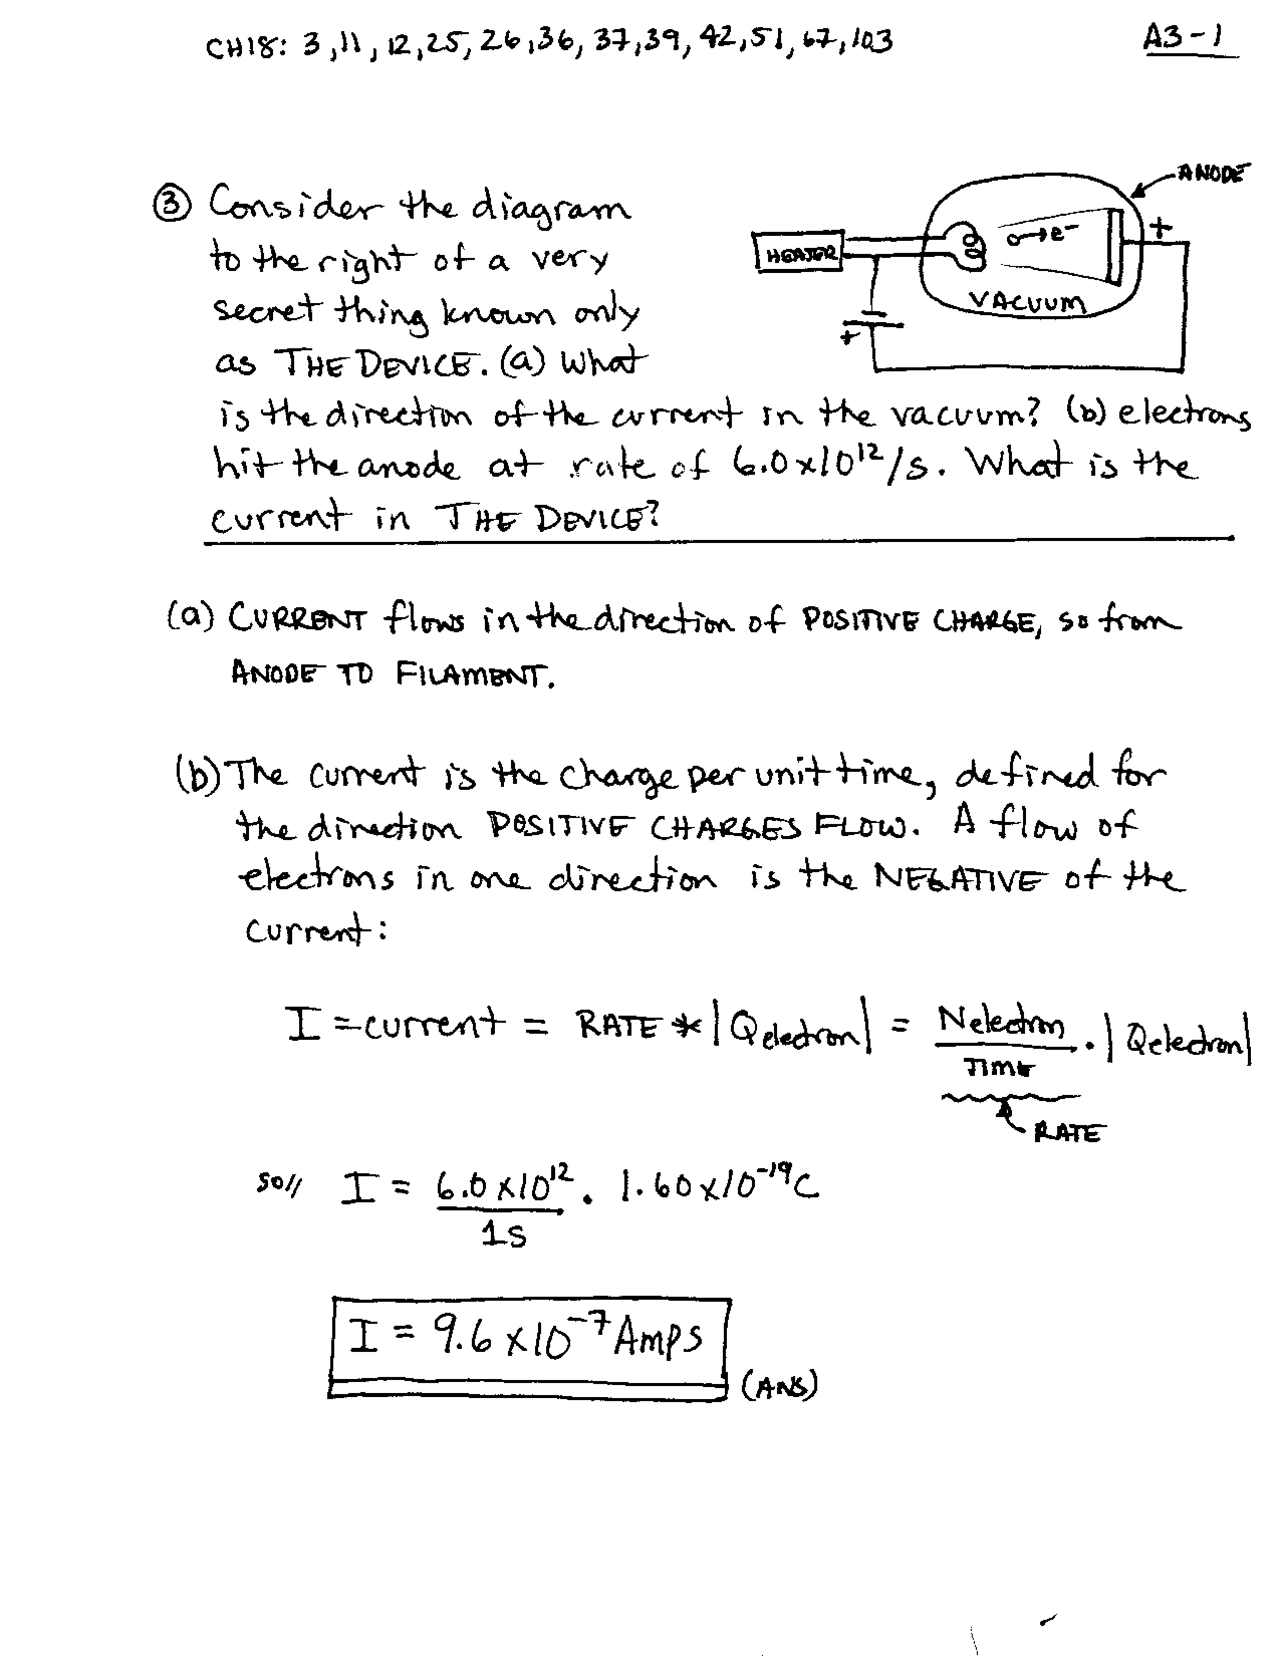 CH18: 3, 11, 12, 25, 26, 36, 37, 39, 42, 51, 67, 103
A3-1
ANODE
③ Consider the diagram
to the right of a very
secret thing known only
as THE DEVICE. (a) What
HEATER
e⁻
+
VACUUM
+
is the direction of the current in the vacuum? (b) electrons
hit the anode at rate of 6.0x10¹²/s. What is the
current in THE DEVICE?
(a) CURRENT flows in the direction of POSITIVE CHARGE, so from
ANODE TO FILAMENT.
(b) The current is the charge per unit time, defined for
the direction POSITIVE CHARGES FLOW. A flow of
electrons in one direction is the NEGATIVE of the
current:
I = current = RATE * |Qelectron| = Nelectron/TIME · |Qelectron|
RATE
so// I = 6.0x10¹²/1s · 1.60x10⁻¹⁹C
I = 9.6x10⁻⁷ Amps
(ANS)